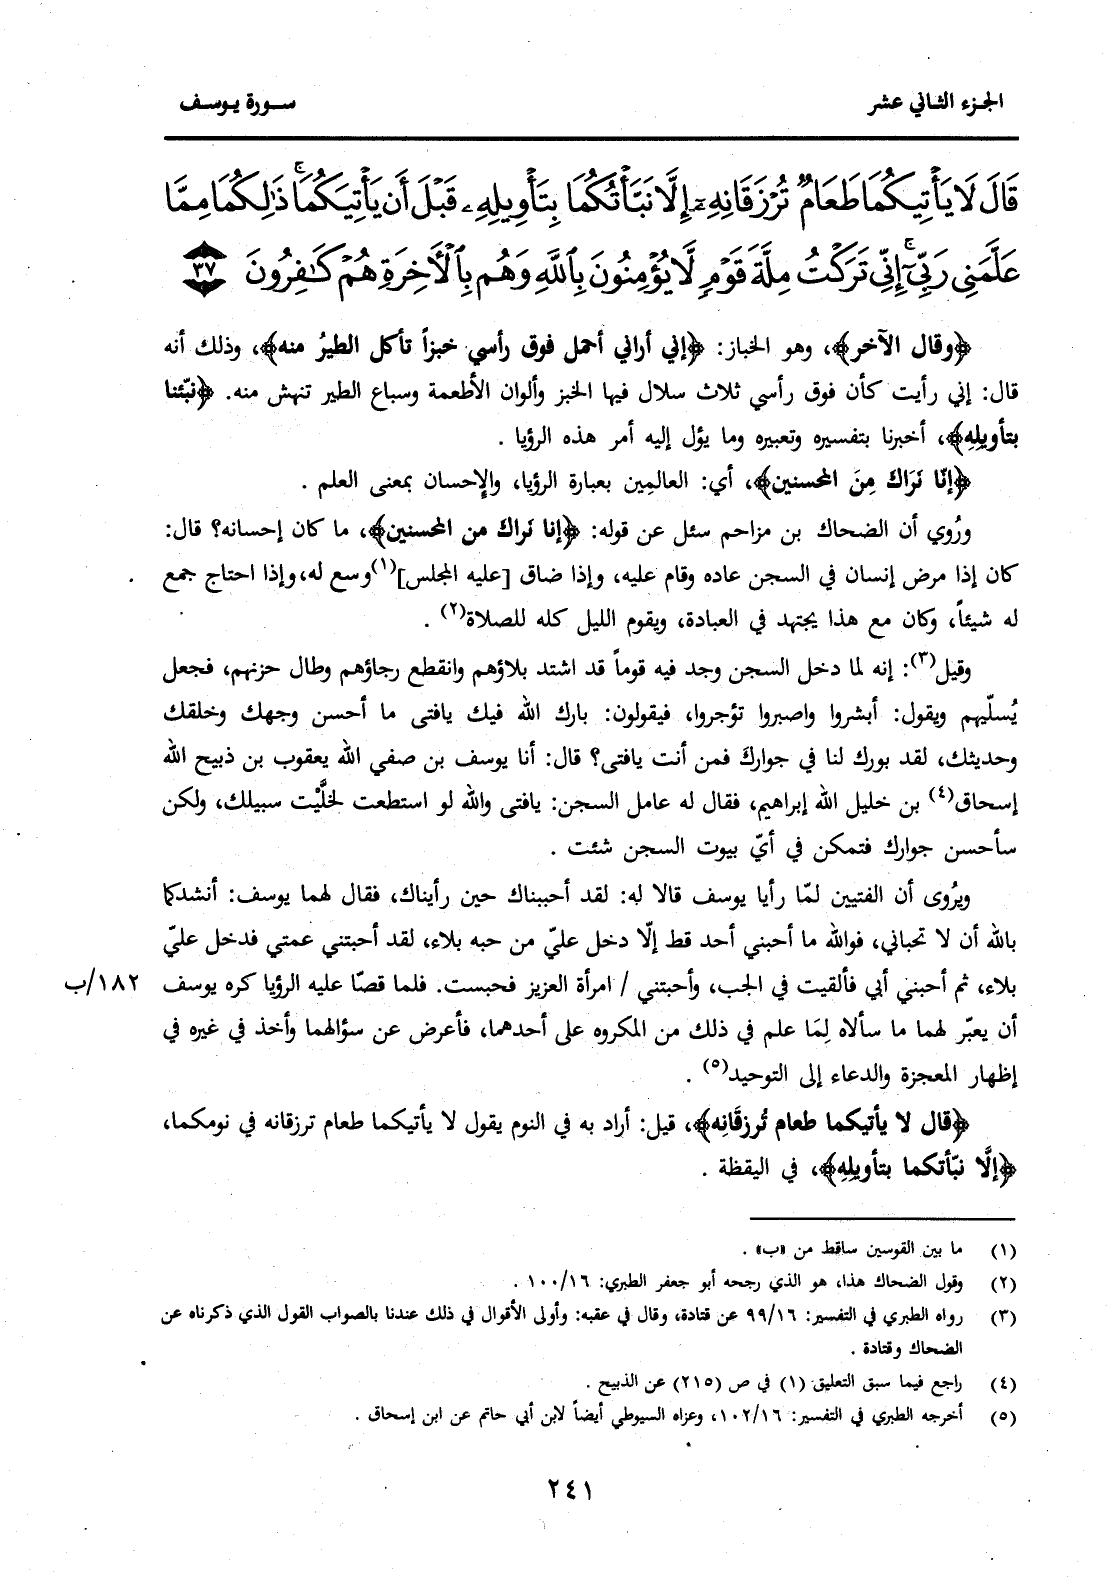 الجزء الثاني عشر
سورة يوسف
قَالَ لَا يَأْتِيكُمَا طَعَامٌ تُرْزَقَانِهِۦٓ إِلَّا نَبَّأْتُكُمَا بِتَأْوِيلِهِۦ قَبْلَ أَن يَأْتِيَكُمَا ۚ ذَٰلِكُمَا مِمَّا
عَلَّمَنِى رَبِّىٓ ۚ إِنِّى تَرَكْتُ مِلَّةَ قَوْمٍ لَّا يُؤْمِنُونَ بِٱللَّهِ وَهُم بِٱلْأَخِرَةِ هُمْ كَـٰفِرُونَ ﴿٣٧﴾
﴿وقال الآخر﴾، وهو الخباز: ﴿إني أراني أحمل فوق رأسي خبزاً تأكل الطيرُ منه﴾، وذلك أنه
قال: إني رأيت كأن فوق رأسي ثلاث سلال فيها الخبز وألوان الأطعمة وسباع الطير تنهش منه. ﴿نبّئنا
بتأويلِهِ﴾، أخبرنا بتفسيره وتعبيره وما يؤل إليه أمر هذه الرؤيا .
﴿إنّا نَرَاكَ مِنَ المحسنين﴾، أي: العالمِين بعبارة الرؤيا، والإحسان بمعنى العلم .
ورُوي أن الضحاك بن مزاحم سئل عن قوله: ﴿إنا نَراكَ من المحسنين﴾، ما كان إحسانه؟ قال:
كان إذا مرض إنسان في السجن عاده وقام عليه، وإذا ضاق [عليه المجلس](١)وسع له، وإذا احتاج جمع
له شيئاً، وكان مع هذا يجتهد في العبادة، ويقوم الليل كله للصلاة(٢) .
وقيل(٣): إنه لما دخل السجن وجد فيه قوماً قد اشتد بلاؤهم وانقطع رجاؤهم وطال حزنهم، فجعل
يُسلّيهم ويقول: أبشروا واصبروا تؤجروا، فيقولون: بارك الله فيك يافتى ما أحسن وجهك وخلقك
وحديثك، لقد بورك لنا في جوارك فمن أنت يافتى؟ قال: أنا يوسف بن صفي الله يعقوب بن ذبيح الله
إسحاق(٤) بن خليل الله إبراهيم، فقال له عامل السجن: يافتى والله لو استطعت لخلَّيْت سبيلك، ولكن
سأحسن جوارك فتمكن في أيّ بيوت السجن شئت .
ويرُوى أن الفتيين لمّا رأيا يوسف قالا له: لقد أحببناك حين رأيناك، فقال لهما يوسف: أنشدكما
بالله أن لا تحباني، فوالله ما أحبني أحد قط إلّا دخل عليّ من حبه بلاء، لقد أحبتني عمتي فدخل عليّ
بلاء، ثم أحبني أبي فألقيت في الجب، وأحبتني / امرأة العزيز فحبست. فلما قصّا عليه الرؤيا كره يوسف
١٨٢/ب
أن يعبّر لهما ما سألاه لِمَا علم في ذلك من المكروه على أحدهما، فأعرض عن سؤالهما وأخذ في غيره في
إظهار المعجزة والدعاء إلى التوحيد(٥) .
﴿قال لا يأتيكما طعام تُرزقَانِه﴾، قيل: أراد به في النوم يقول لا يأتيكما طعام ترزقانه في نومكما،
﴿إلَّا نبّأتكما بتأويلِهِ﴾، في اليقظة .
(١) ما بين القوسين ساقط من «ب» .
(٢) وقول الضحاك هذا، هو الذي رجحه أبو جعفر الطبري: ١٠٠/١٦ .
(٣) رواه الطبري في التفسير: ٩٩/١٦ عن قتادة، وقال في عقبه: وأولى الأقوال في ذلك عندنا بالصواب القول الذي ذكرناه عن
الضحاك وقتادة .
(٤) راجع فيما سبق التعليق (١) في ص (٢١٥) عن الذبيح .
(٥) أخرجه الطبري في التفسير: ١٠٢/١٦، وعزاه السيوطي أيضاً لابن أبي حاتم عن ابن إسحاق .
٢٤١